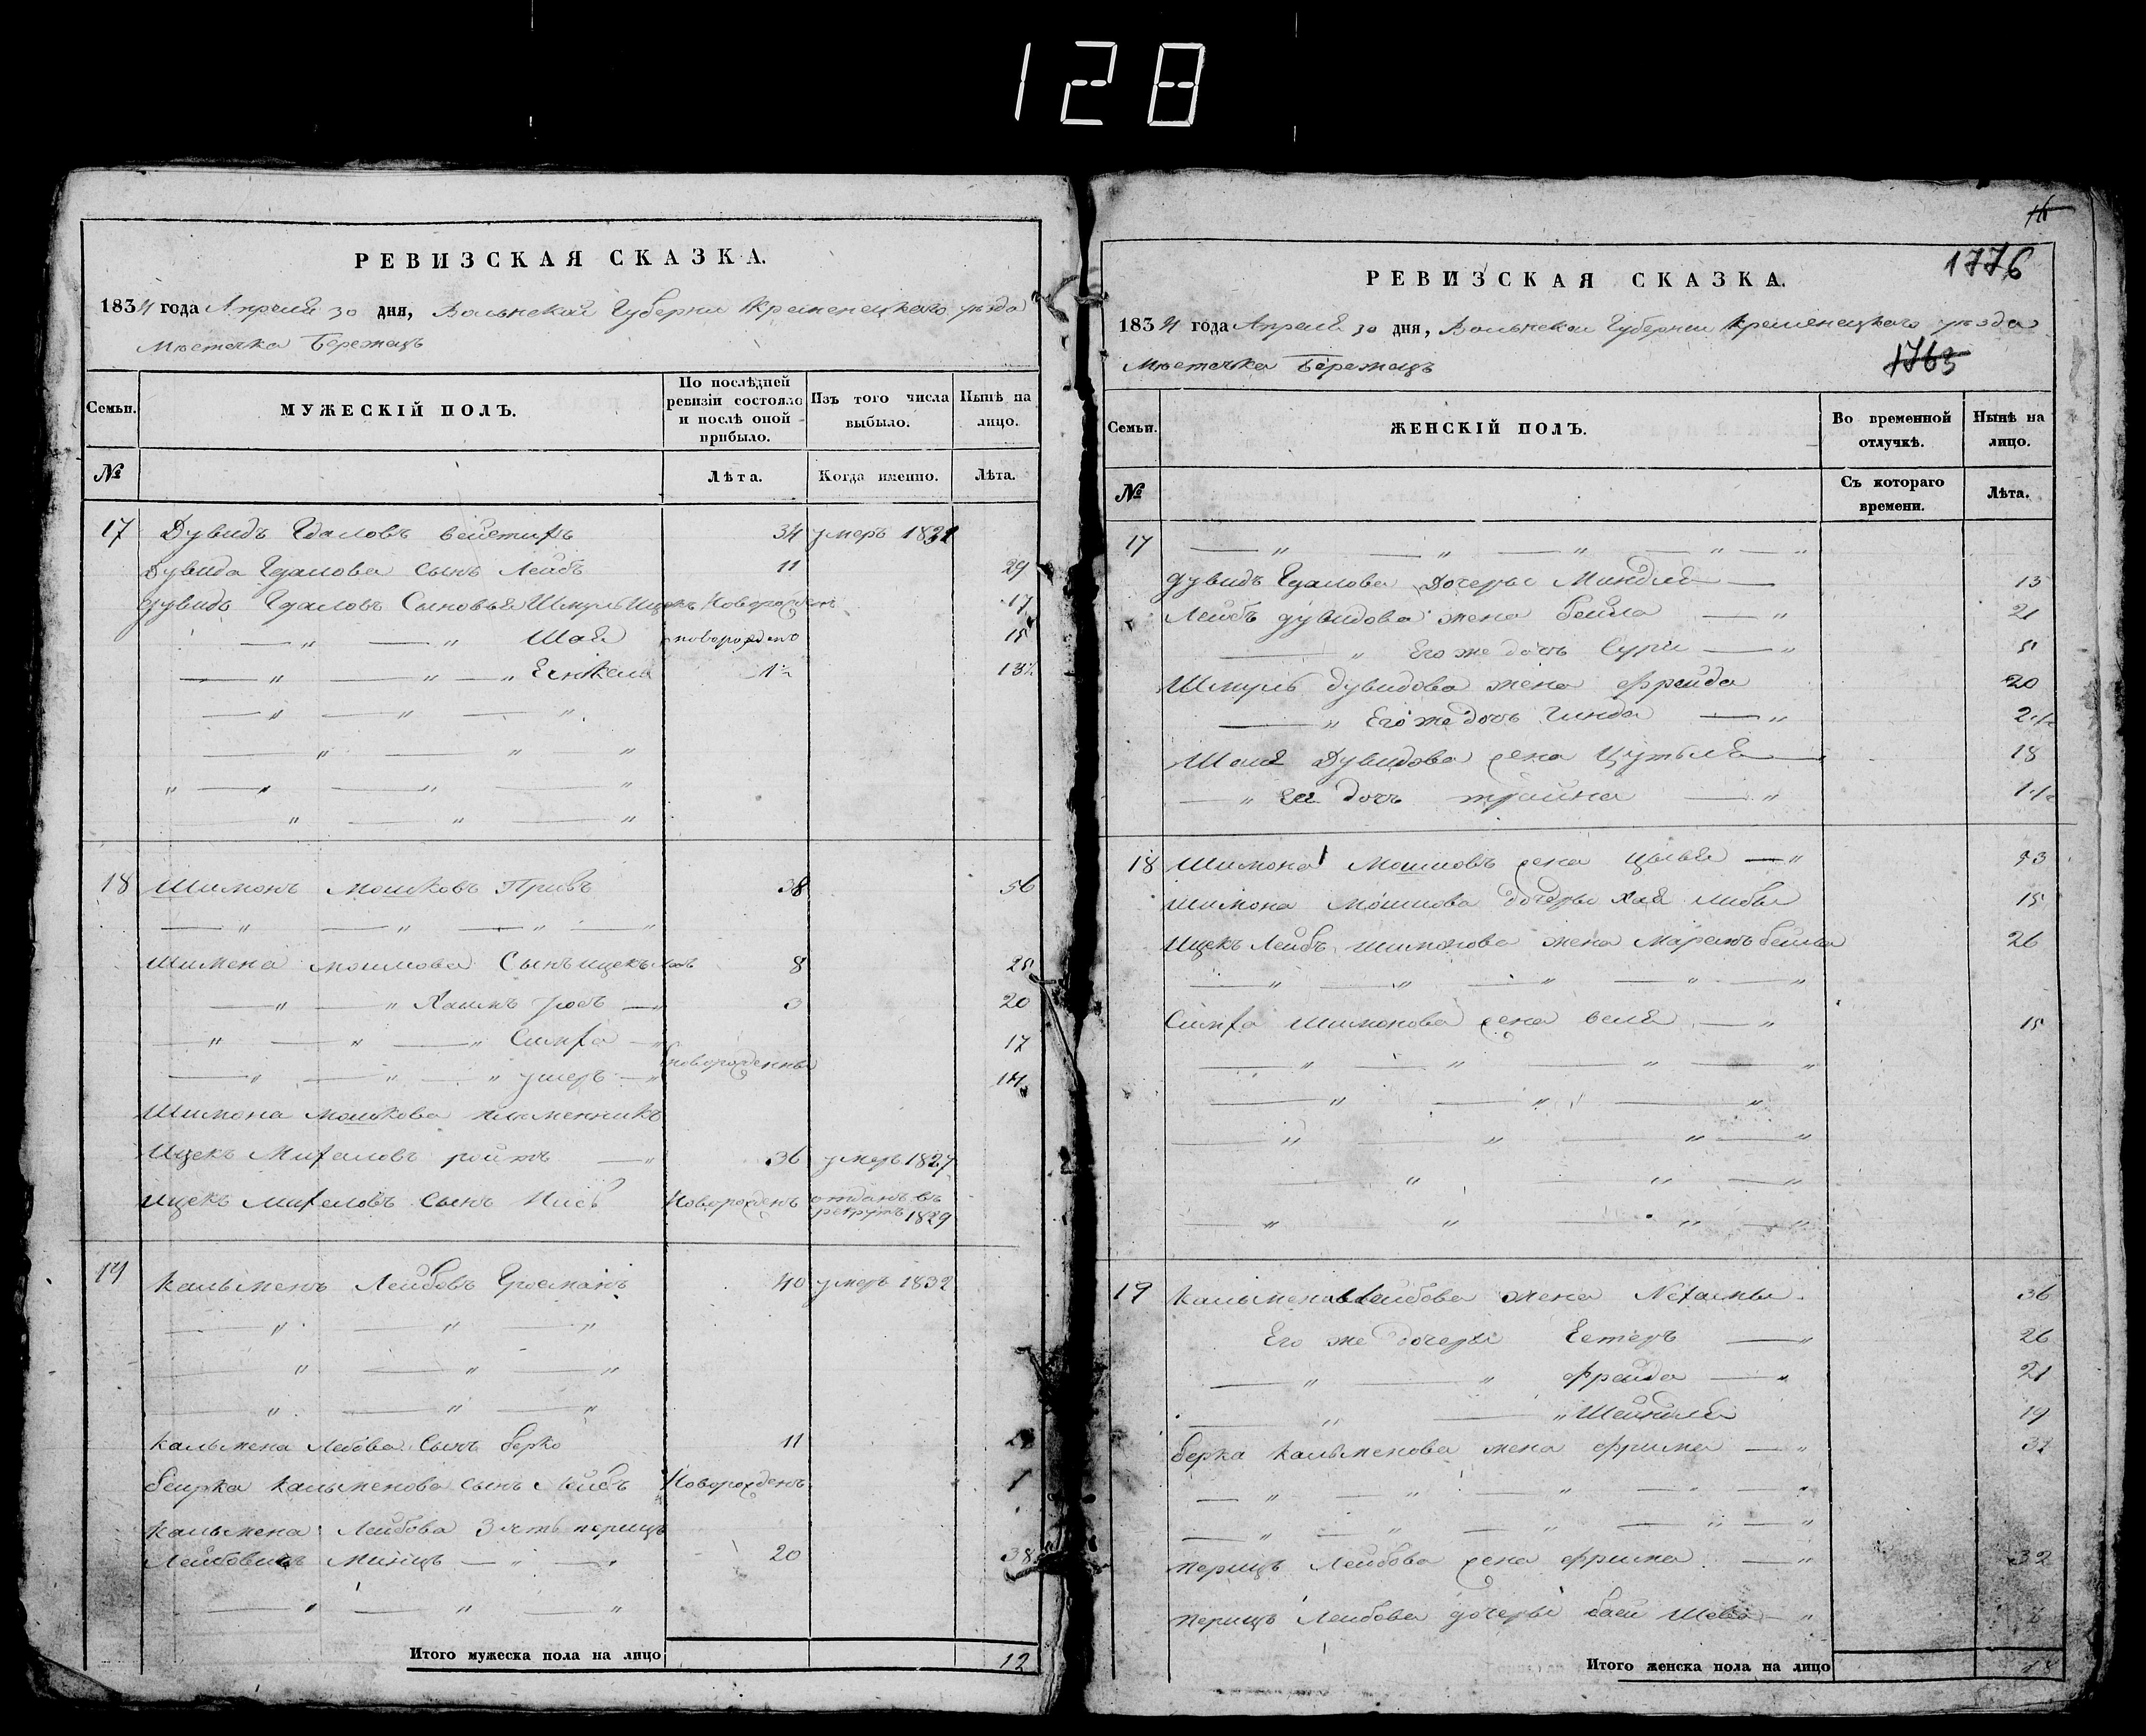 128
РЕВИЗСКАЯ СКАЗКА.
1834 года Апреля 30 дня, Волынской Губернии Кременецкого уезда
Местечка Бережецъ
Семьи.
МУЖЕСКІЙ ПОЛЪ.
По послѣдней ревизіи состояло и послѣ оной прибыло.
Изъ того числа выбыло.
Нынѣ на лицо.
№
Лѣта.
Когда именно.
Лѣта.
17 Дувидъ Гдаловъ 34 умеръ 1831
Дувида Гдалова сынъ Лейбъ 11 29
Дувидъ Гдаловъ Сыновья Шмуль Ицекъ Новорожденъ 17
— „ — „ Шая новорожденъ 15
— „ — „ — „ 1½ 13½
— „ — „ — „
— „ — „ — „
„ — „ — „ — „
— „ — „ — „
18 Шимонъ Мошковъ 38 56
— „ — „ — „ — „
Шимона Мошкова Сынъ Ицекъ Лейбъ 8 25
— „ — „ Хаимъ — „ 3 20
— „ — „ — „ Симха — „ 17
— „ — „ — „ — „ новорожденны 14
Шимона Мошкова племенникъ
Ицекъ Михеловъ — „ 36 умеръ 1827
Ицекъ Михеловъ Сынъ Новорожденъ отданъ въ рекруты 1829
19 Кальменъ Лейбовъ Гросманъ 40 умеръ 1832
— „ — „ — „
— „ — „ — „
— „ — „ — „
Кальмена Лебова Сынъ Берко 11
Беирка Кальменова сынъ Лейбъ Новорожденъ 1
Кальмена Лейбова Зять перицъ
Лейбовицъ Минцъ — „ — „ 20 38
— „ — „ — „
Итого мужеска пола на лицо 12
16
1776
РЕВИЗСКАЯ СКАЗКА.
1834 года Апреля 30 дня, Волынской Губернии Кременецкого уезда
1763
Местечка Бережецъ
Семьи.
ЖЕНСКІЙ ПОЛЪ.
Во временной отлучкѣ.
Нынѣ на лицо.
№
Съ котораго времени.
Лѣта.
17 — „ — „ — „ — „ — „
Дувидъ Гдалова Дочеры Миндля — 13
Лейбъ дувидова жена бейла — „ 21
— „ Его же дочъ Сури — „
Шмуль дувидова жена фрейда 20
— „ Его же дочъ Гинда — „ 2½
Шая Дувидова жена — 18
— „ дочъ — „ 1½
18 Шимона Мошковъ жена цывья — „
Шимона Мошкова дочеры Хая либы 15
Ицекъ Лейбъ Шимонова жена Марьямъ бейла 26
— „ — „ — „ — „ — „
Симха Шимонова жена — „ 15
— „ — „ — „ — „
— „ — „ — „
— „ — „ — „ — „
— „ — „ — „
— „ — „ — „ — „
19 Кальмена Лейбова жена Нехамы 36
Его же дочеры Естеръ — „ 26
— „ — „ фрейда — „ 21
— „ — „ Шейндля 19
берка Кальменова жена фрима — „
— „ — „ — „ — „ — „
— „ — „ — „ — „ — „
Перицъ Лейбова жена фрима — „ 32
Перицъ Лейбова дочеры Шева — „
Итого женска пола на лицо